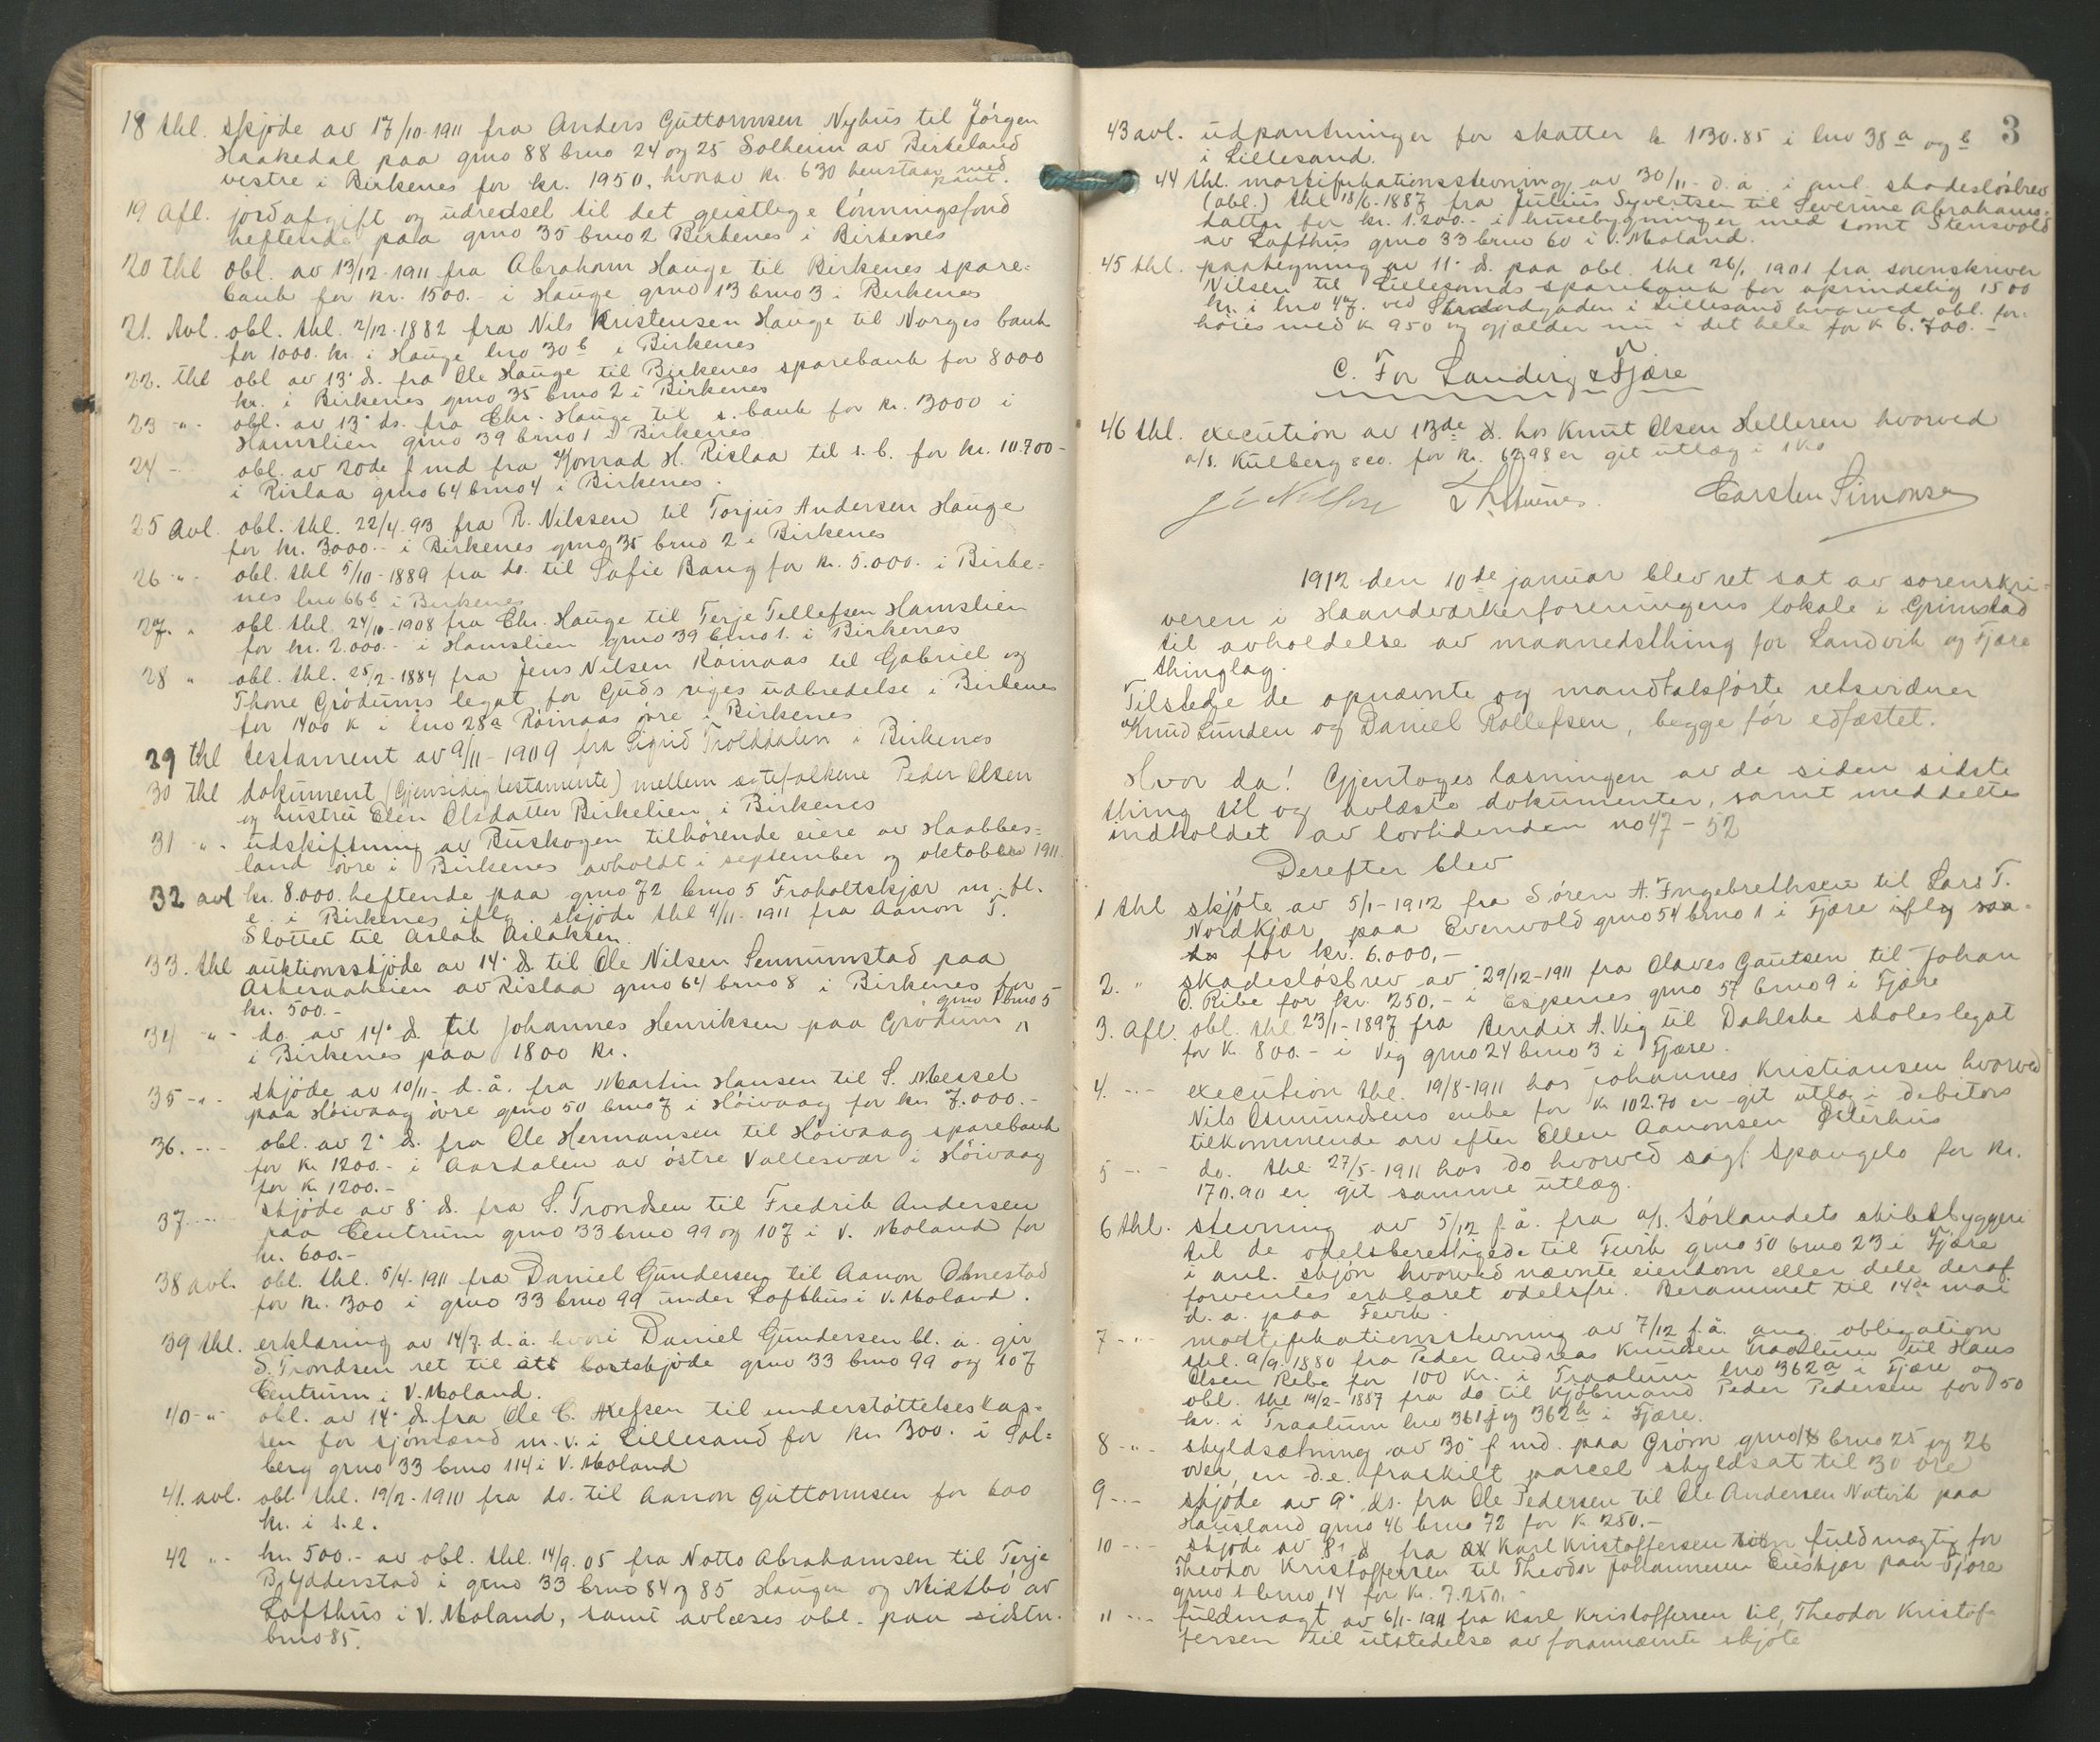 18 thl. skjøde av 17/10-1911 fra Anders Guttormsen Nyhus til Jörgen
Haakedal paa grno 88 brno 24 og 25 Solheim av Birkeland
vestre i Birkenes for kr. 1950, hvorav kr. 630 henstaar med
pant.
19 Afl. jordafgift og udredsel til det geistlige lönningsfond
heftende paa grno 35 brno 2 Birkenes i Birkenes
20 thl obl. av 13/12-1911 fra Abraham Hauge til Birkenes spare-
bank for kr. 1500.- i Hauge grno 13 brno 3 i Birkenes
21. Avl. obl. thl. 2/12-1882 fra Nils Kristensen Hauge til Norges bank
for 1000. kr. i Hauge lno 30 b i Birkenes
22. thl obl av 13' d. fra Ole Hauge til Birkenes sparebank for 8000
kr. i Birkenes grno 35 brno 2 i Birkenes
23 -"- obl. av 13' ds. fra Chr. Hauge til s. bank for kr. 3000 i
Hamslien grno 39 brno 1 i Birkenes
24 - obl. av 20de f md fra Konrad H. Rislaa til s. b. for kr. 10.700-
i Rislaa grno 64 brno 4 i Birkenes.
25 Avl obl. thl. 22/4.93 fra R. Nilssen til Torjus Andersen Hauge
for kr. 3000.- i Birkenes grno 35 brno 2 i Birkenes
26 -"- obl. thl 5/10-1889 fra do. til Sofie Bang for kr. 5.000. i Birke-
nes lno 66 b i Birkenes
27. " obl. thl. 24/10-1908 fra Chr. Hauge til Terje Tellefsen Hamslien
for kr. 2.000.- i Hamslien grno 39 brno 1. i Birkenes
28 " obl. thl. 25/2-1884 fra Jens Nilsen Röinaas til Gabriel og
Thone Grödums legat for Guds riges udbredelse i Birkenes
for 1400 k i lno 28a Röinaas övre i Birkenes
29 thl testament av 9/11-1909 fra Sigrid Trolddalen i Birkenes
30 thl dokument (Gjensidig testamente) mellem egtefolkene Peder Olsen
og hustru Elen Olsdatter Birkelien i Birkenes
31 -"- udskiftning av Buskogen tilhörende eiere av Haabbes-
land övre i Birkenes avholdt i september og oktober 1911.
32 avl kr. 8.000. heftende paa grno 72 brno 5 Froholtskjær m. fl.
e. i Birkenes iflg. skjöde thl 4/11-1911 fra Aanon T.
Slottet til Aslak Aslaksen.
33. thl auktionsskjöde av 14' d. til Ole Nilsen Sennumstad paa
Askeraaheien av Rislaa grno 64 brno 8 i Birkenes for
kr. 500.-
34 -"- do. av 14' d. til Johannes Henriksen paa Grödum grno 1 brno 5
i Birkenes paa 1800 kr.
35 -"- skjöde av 10/11- d. å. fra Martin Hansen til S. Messel
paa Höivaag övre grno 50 brno 7 i Höivaag for kr. 7.000.-
36. -"- obl. av 2' d. fra Ole Hermansen til Höivaag sparebank
for kr 1200.- i Aardalen av östre Vallesvær i Höivaag
for kr 1200.-
37 -"- skjöde av 8' d. fra S. Trondsen til Fredrik Andersen
paa Centrum grno 33 brno 99 og 107 i V. Moland for
kr. 600.-
38 avl. obl. thl. 5/4-1911 fra Daniel Gundersen til Aanon Omestad
for kr. 300 i grno 33 brno 99 under Lofthus i V. Moland.
39 thl. erklæring av 14/7. d. a. hvori Daniel Gundersen bl. a. gir
S. Trondsen ret til att bortskjöde grno 33 brno 99 og 107
Centrum i V. Moland.
40 -"- obl. av 14' d. fra Ole C. Olefsen til understöttelseskas-
sen for sjömænd m. v. i Lillesand for kr. 300. i Sol-
berg grno 33 brno 114 i V. Moland
41. avl. obl thl. 19/2-1910 fra do. til Aanon Guttormsen for 600
kr. i s. e.
42 "- kr. 500.- av obl. thl. 14/9.05 fra Notto Abrahamsen til Terje
B. Ydderstad i grno 33 brno 84 og 85 Haugen og Midtbö av
Lofthus i V. Moland, samt avlæses obl. paa sidstn.
brno 85.
3
43 avl. udpantninger for skatter kr 130.85 i lno 38 a og b
i Lillesand.
44 thl. mortifikationsstevning av 30/11- d. a. i anl. skadeslösbrev
(obl.) thl 18/6-1887 fra Julius Syvertsen til Severine Abrahams-
datter for kr. 1.200.- i husebygninger med tomt Stensvold
av Lofthus grno 33 brno 60 i V. Moland.
45 thl. paategning av 11' d. paa obl. thl 26/1 1901 fra sorenskriver
Nilsen til Lillesands sparebank for oprindelig 1500
kr. i lno 47. ved Strandgaden i Lillesand hvorved obl. for-
höies med k 950 og gjælder nu i det hele for k 6.700.-
C. For Landvig & Fjære
46 thl. execution av 13de d. hos Knut Olsen Helleren hvorved
a/s. Kulberg & co. for kr. 62.98 er git utlæg i 1 ko
Carsten Simonsen
1912 den 10de januar blev ret sat av sorenskri-
veren i Haandverkerforeningens lokale i Grimstad
til avholdelse av maanedsthing for Landvik og Fjære
thinglag.
Tilstede de opnævnte og mandtalsförte retsvidner
Knud Lunden og Daniel Rollefsen, begge för edfæstet.
Hvor da! Gjentoges læsningen av de siden sidste
thing til og avlæste dokumenter, samt meddeltes
indholdet av lovtidenden no 47-52
Derefter blev
1 thl skjöte av 5/1-1912 fra Sören A. Ingebrethsen til Lars T.
Nordkjær paa Evenvold grno 54 brno 1 i Fjære
for kr. 6.000,-
2. " skadeslösbrev av 29/12-1911 fra Olaves Gautsen til Johan
O. Ribe for kr. 250.- i Espenes grno 57 brno 9 i Fjære
3. Afl. obl. thl 23/1-1897 fra Bendix A. Vig til Dahlske skoles legat
for k. 800.- i Vig grno 24 brno 3 i Fjære.
4. -"- execution thl. 19/8-1911 hos Johannes Kristiansen hvorved
Nils Osmundsens enke for k 102.70 er git utlæg i debitors
tilkommende arv efter Ellen Aanonsen Østerhus
5 -"- do. thl. 27/5-1911 hos do hvorved sagf. Spangelo for kr.
170.90 er git samme utlæg.
6 thl. stevning av 5/12 f. å. fra a/s. Sörlandets skibsbyggeri
til de odelsberettigede til Fevik grno 50 brno 23 i Fjære
i anl. skjön hvorved nævnte eiendom eller dele deraf
forventes erklæret odelsfri. Berammet til 14de mai
d. a. paa Fevik.
7 -"- mortifikationsstevning av 7/12 f. å. ang. obligation
thl. 9/9-1880 fra Peder Andreas Knudsen Traalum til Hans
Olsen Ribe for 100 kr. i Traalum lno 362 a i Fjære og
obl. thl 14/2-1887 fra do til kjöbmand Peder Pedersen for 50
kr. i Traalum lno 361 f og 362 h i Fjære.
8 -"- skyldsætning av 30' f. md. paa Gröm grno 18 brno 25 og 26
over en d. e. fraskilt parcel skyldsat til 30 øre
9 -"- skjöde av 9' ds. fra Ole Pedersen til Ole Andersen Natvik paa
Hausland grno 46 brno 72 for k. 250.-
10 -"- skjöde av 8' d fra Karl Kristoffersen som fuldmægtig for
Theodor Kristoffersen til Theodor Johannesen Eieskjær paa Fjære
grno 1 brno 14 for kr. 7.250.-
11 -"- fuldmagt av 6/1-1911 fra Karl Kristoffersen til Theodor Kristof-
fersen til utstedelse av forannævnte skjöte